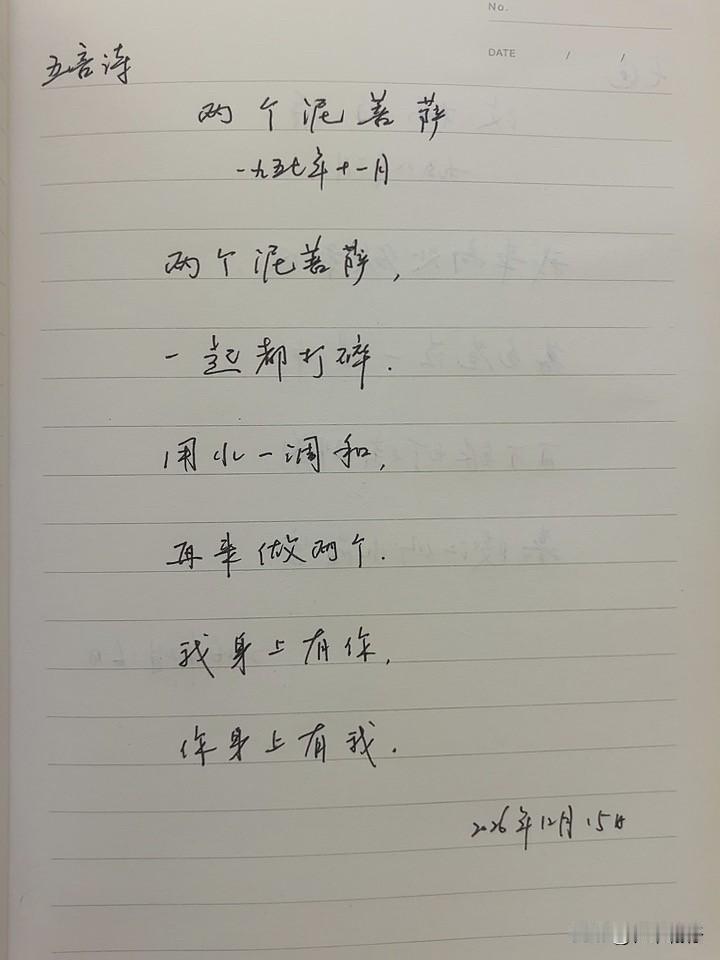 No.
DATE / /
五言诗
两个泥菩萨
一九五七年十一月
两个泥菩萨,
一起都打碎.
用水一调和,
再来做两个.
我身上有你,
你身上有我.
2026年12月15日